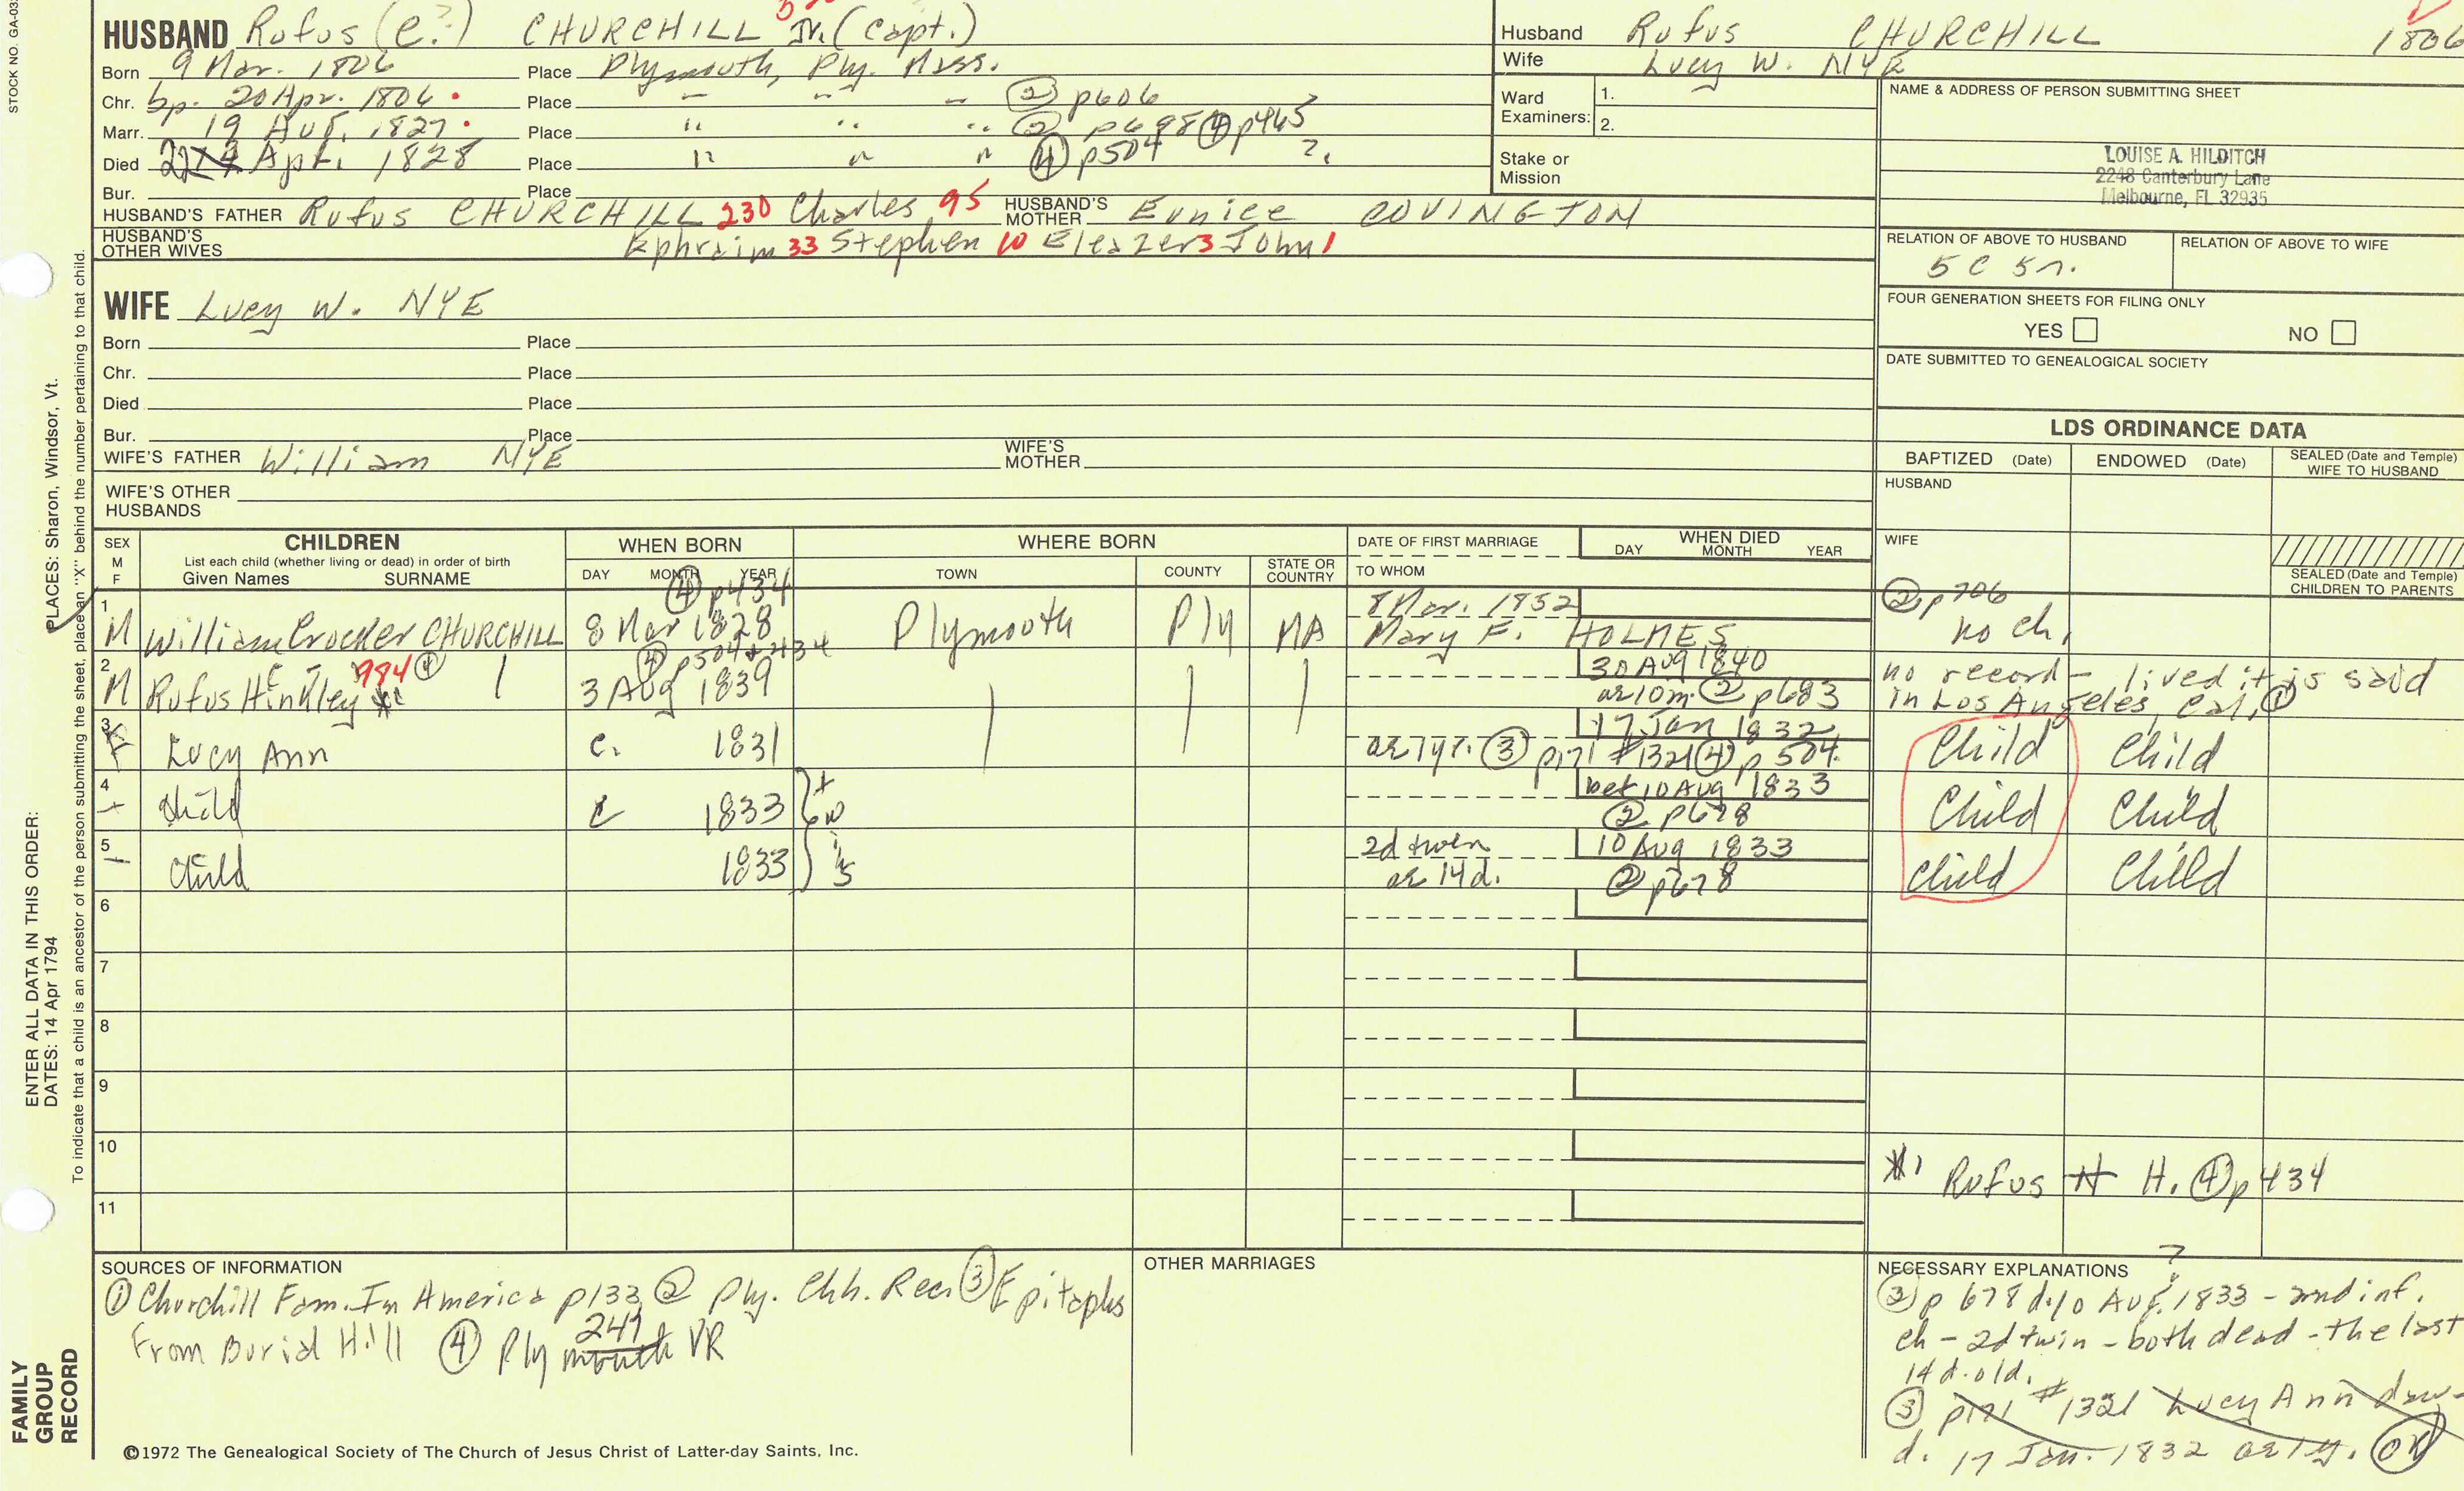 STOCK NO. GA-03
HUSBAND Rufus (C?) CHURCHILL Jr. (Capt.)
Born 9 Mar. 1806 Place Plymouth, Ply. Mass.
Chr. bp. 20 Apr. 1806 Place " " " ② p606
Marr. 19 Aug. 1827 Place " " " ② p698 ④ p465
Died Apr. 1828 Place " " " ④ p504 ?
Bur. Place
HUSBAND'S FATHER Rufus CHURCHILL 230 Charles 95 HUSBAND'S MOTHER Eunice COVINGTON
HUSBAND'S OTHER WIVES Ephraim 33 Stephen 10 Eleazer 3 John 1
Husband Rufus CHURCHILL 1806
Wife Lucy W. NYE
Ward Examiners: 1.
2.
Stake or Mission
NAME & ADDRESS OF PERSON SUBMITTING SHEET
LOUISE A. HILDITCH
2248 Canterbury Lane
Melbourne, FL 32935
RELATION OF ABOVE TO HUSBAND RELATION OF ABOVE TO WIFE
5 C 5 r.
FOUR GENERATION SHEETS FOR FILING ONLY
YES NO
DATE SUBMITTED TO GENEALOGICAL SOCIETY
WIFE Lucy W. NYE
Born Place
Chr. Place
Died Place
Bur. Place
WIFE'S FATHER William NYE WIFE'S MOTHER
WIFE'S OTHER HUSBANDS
LDS ORDINANCE DATA
BAPTIZED (Date) ENDOWED (Date) SEALED (Date and Temple) WIFE TO HUSBAND
HUSBAND
WIFE
SEALED (Date and Temple) CHILDREN TO PARENTS
SEX M F CHILDREN WHEN BORN WHERE BORN DATE OF FIRST MARRIAGE WHEN DIED
List each child (whether living or dead) in order of birth DAY MONTH YEAR
Given Names SURNAME DAY MONTH YEAR TOWN COUNTY STATE OR COUNTRY TO WHOM
④ p434 8 Mar. 1852 ② p706
1 M William Crocker CHURCHILL 8 Mar 1828 Plymouth Ply MA Mary F. HOLMES no ch.
984 ④ ④ p504 & 434 30 Aug 1840 no record - lived it is said
2 M Rufus Hinkley 3 Aug 1839 ae 10m. ② p683 in Los Angeles, Cal. ①
17 Jan 1832
3 F Lucy Ann c. 1831 ae 1 yr. ③ p171 #1321 ④ p 504. Child Child
bet 10 Aug 1833
4 Child c 1833 twins ② p678 Child Child
2d twin 10 Aug 1833
5 Child 1833 ae 14 d. ② p678 Child Child
6
7
8
9
10
*1 Rufus H H. ④ p434
11
SOURCES OF INFORMATION
① Churchill Fam. In America p133 ② Ply. Chh. Rec. ③ Epitaphs
From Burial Hill ④ Plymouth VR
OTHER MARRIAGES
NECESSARY EXPLANATIONS ?
② p 678 d. 10 Aug. 1833 - and inf.
ch - 2d twin - both dead - the last
14 d. old.
③ p171 #1321 Lucy Ann dau-
d. 17 Jan. 1832 ae 1 y. OK
PLACES: Sharon, Windsor, Vt.
ENTER ALL DATA IN THIS ORDER:
DATES: 14 Apr 1794
To indicate that a child is an ancestor of the person submitting the sheet, place an "X" behind the number pertaining to that child.
FAMILY GROUP RECORD
©1972 The Genealogical Society of The Church of Jesus Christ of Latter-day Saints, Inc.